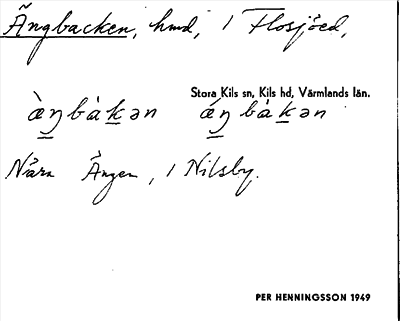 Ängbacken, hmd, 1 Flosjöed,
Stora Kils sn, Kils hd, Värmlands län.
æ̀ŋbàkən ǽŋbàkən
Nära Ängen, 1 Nilsby.
PER HENNINGSSON 1949